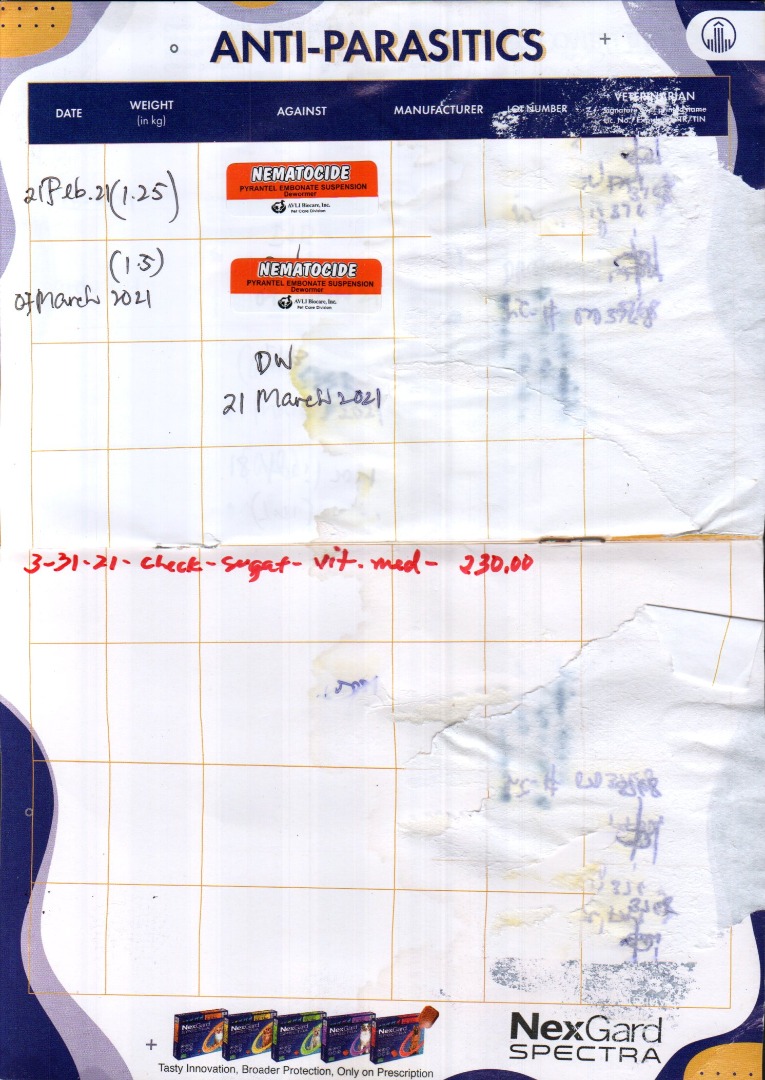 ANTI-PARASITICS
DATE
WEIGHT
(in kg)
AGAINST
MANUFACTURER
LOT NUMBER
VETERINARIAN
21 Feb. 21 (1.25)
NEMATOCIDE
PYRANTEL EMBONATE SUSPENSION
Dewormer
AVLI Biocare, Inc.
Pet Care Division
(1.5)
07 March 2021
NEMATOCIDE
PYRANTEL EMBONATE SUSPENSION
Dewormer
AVLI Biocare, Inc.
Pet Care Division
DW
21 March 2021
3-31-21- check-sugat- vit. med- 230.00
NexGard
SPECTRA
Tasty Innovation, Broader Protection, Only on Prescription